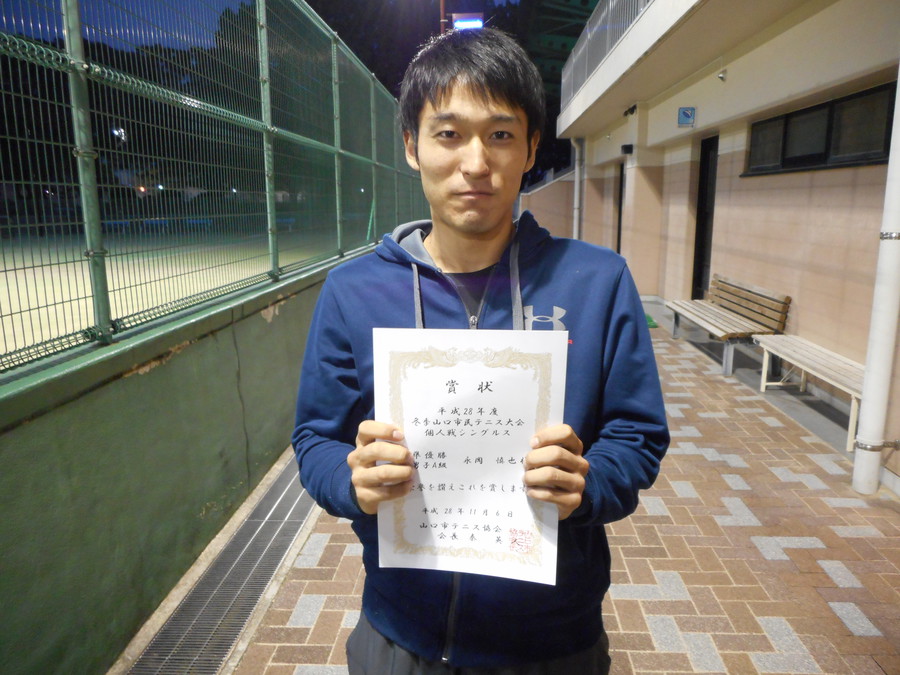 賞状
平成28年度
冬季山口市民テニス大会
個人戦シングルス
準優勝
男子A級
永岡 慎也
を讃えこれを賞します
平成28年11月6日
山口市テニス協会
会長